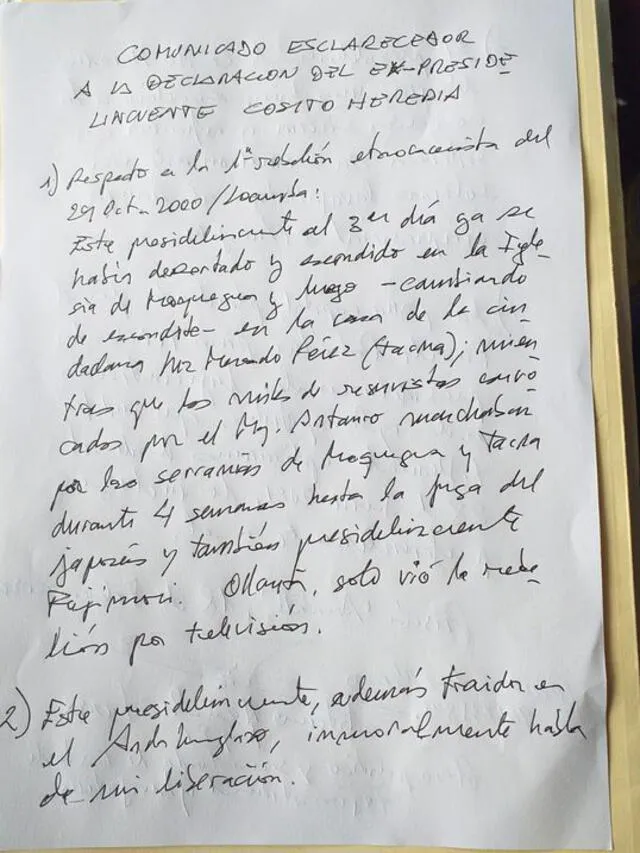 COMUNICADO ESCLARECEDOR
A LA DECLARACION DEL EX-PRESIDE
LINCUENTE COSITO HEREDIA
1) Respecto a la 1ra rebelión etnocacerista del
29 Oct. 2000 / Locumba:
Este presidelincuente al 3er día ya se
había desertado y escondido en la Igle
sia de Moquegua y luego - cambiando
de escondite - en la casa de la ciu
dadana Pérez (Tacna); mien
tras que los miles de reservistas convo
cados por el My. Antauro marchaban
por las serranías de Moquegua y Tacna
durante 4 semanas hasta la fuga del
japonés y también presidelincuente
Fujimori. Ollanta, solo vió la rebe
lión por televisión.
2) Este presidelincuente, además traidor en
el Andahuaylazo, inmoralmente habla
de mi liberación.